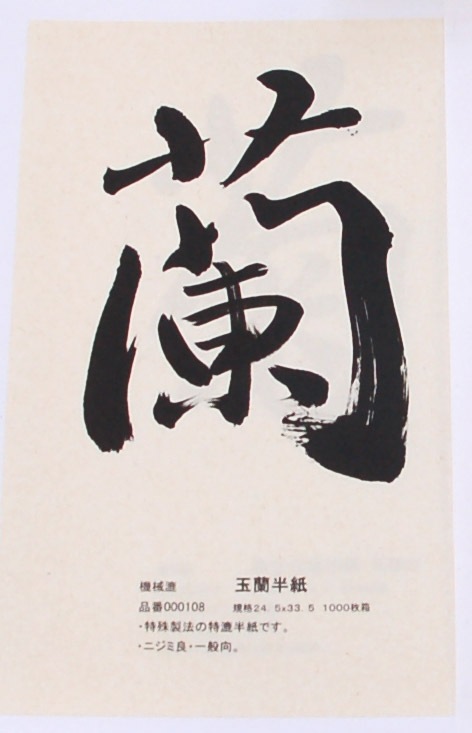 蘭
機械漉 玉蘭半紙
品番000108 規格24.5x33.5 1000枚箱
・特殊製法の特漉半紙です。
・ニジミ良・一般向。